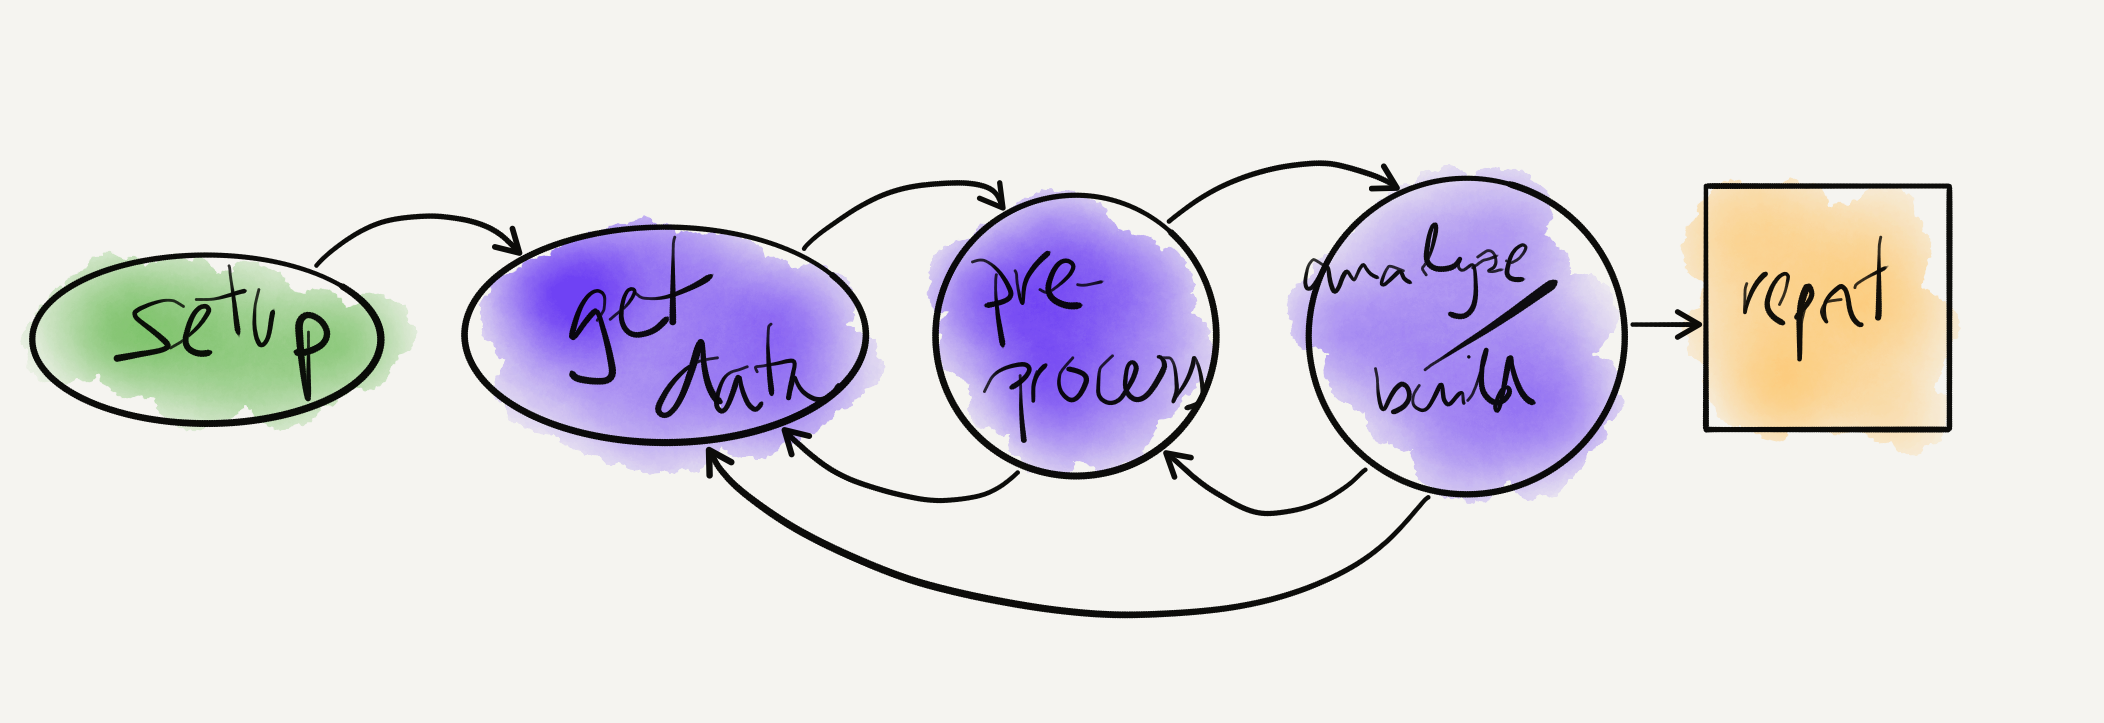 setup
get
data
pre-
process
analyze
/
build
repeat